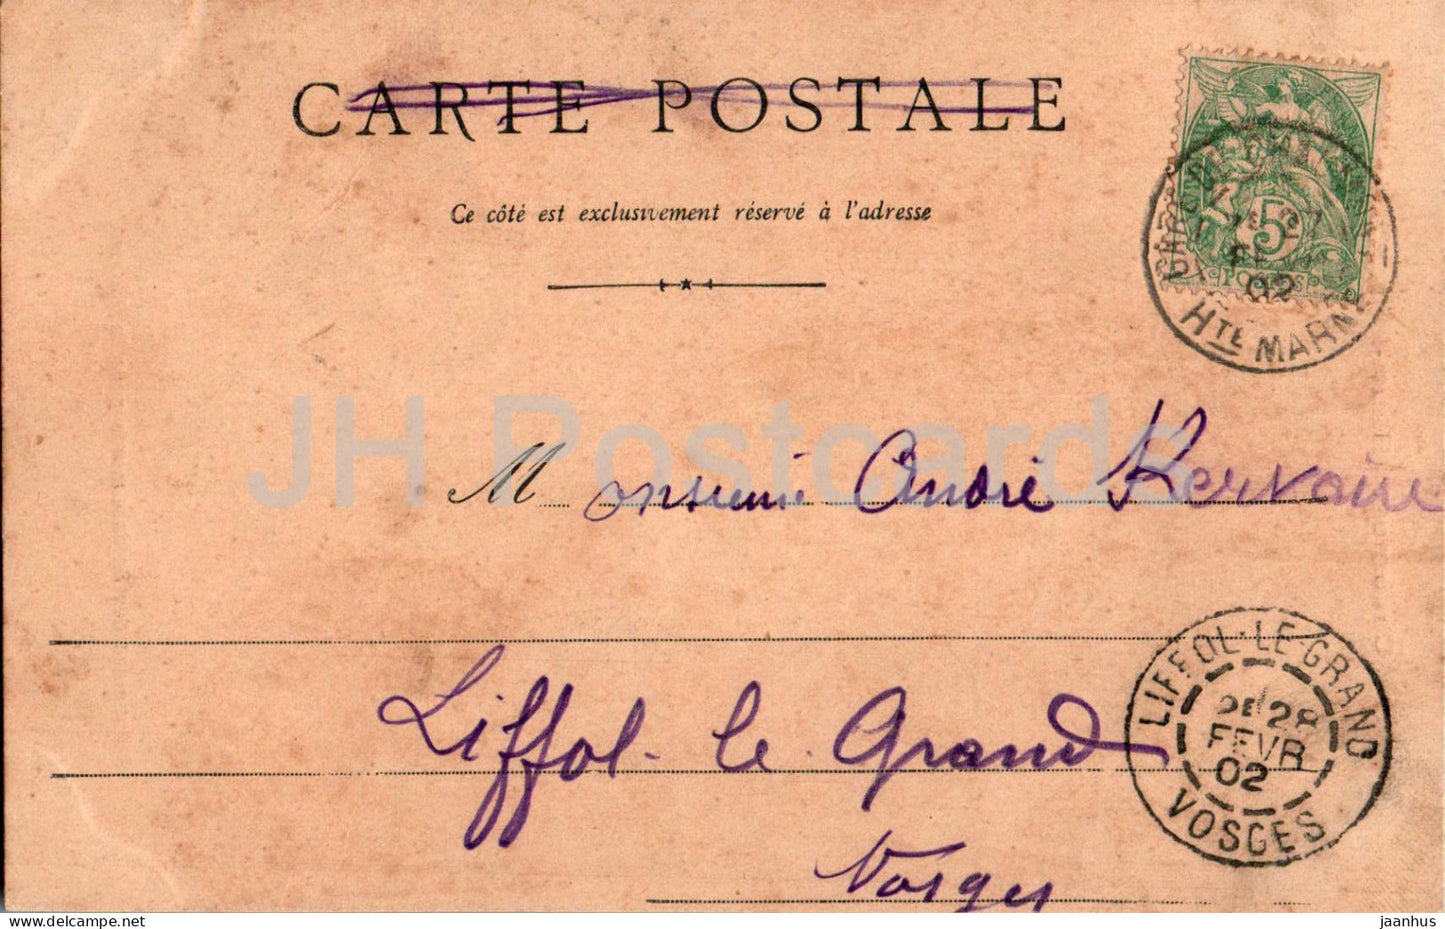 CARTE POSTALE
Ce côté est exclusivement réservé à l'adresse
5
POSTES
02
HTE MARNE
JH Postcards
Monsieur André Kervaire
Liffol-le-Grand
Vosges
LIFFOL-LE-GRAND
2E 28
FEVR
02
VOSGES
delcampe.net
jaanhus